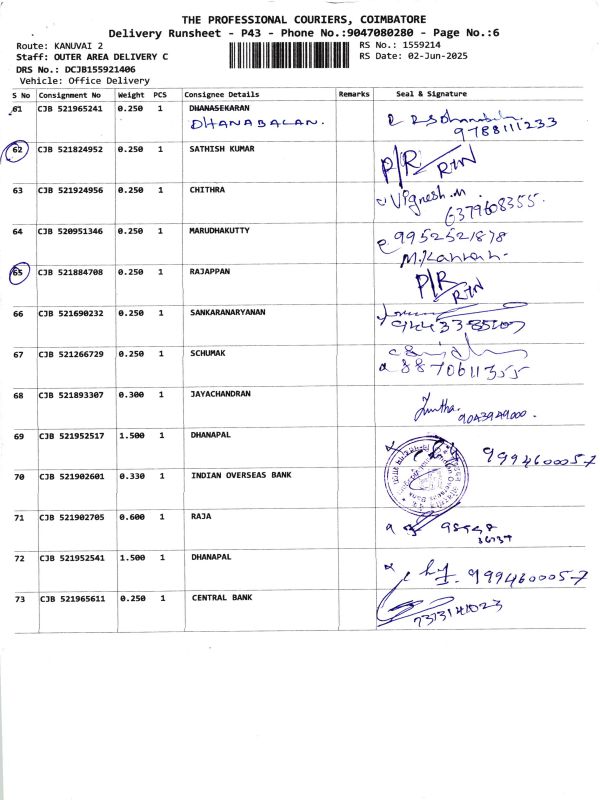 THE PROFESSIONAL COURIERS, COIMBATORE
Delivery Runsheet - P43 - Phone No.:9047080280 - Page No.:6
Route: KANUVAI 2
RS No.: 1559214
Staff: OUTER AREA DELIVERY C
RS Date: 02-Jun-2025
DRS No.: DCJB155921406
Vehicle: Office Delivery
S No Consignment No Weight PCS Consignee Details Remarks Seal & Signature
61 CJB 521965241 0.250 1 DHANASEKARAN
DHANABALAN.
9788111233
62 CJB 521824952 0.250 1 SATHISH KUMAR P/R RTN
63 CJB 521924956 0.250 1 CHITHRA Vignesh.m
6379608355.
64 CJB 520951346 0.250 1 MARUDHAKUTTY 9952521878
65 CJB 521884708 0.250 1 RAJAPPAN P/R RTN
66 CJB 521690232 0.250 1 SANKARANARYANAN
67 CJB 521266729 0.250 1 SCHUMAK
8870611355
68 CJB 521893307 0.300 1 JAYACHANDRAN
9043949000.
69 CJB 521952517 1.500 1 DHANAPAL 9994600057
70 CJB 521902601 0.330 1 INDIAN OVERSEAS BANK Indian Overseas Bank
71 CJB 521902705 0.600 1 RAJA
72 CJB 521952541 1.500 1 DHANAPAL 9994600057
73 CJB 521965611 0.250 1 CENTRAL BANK